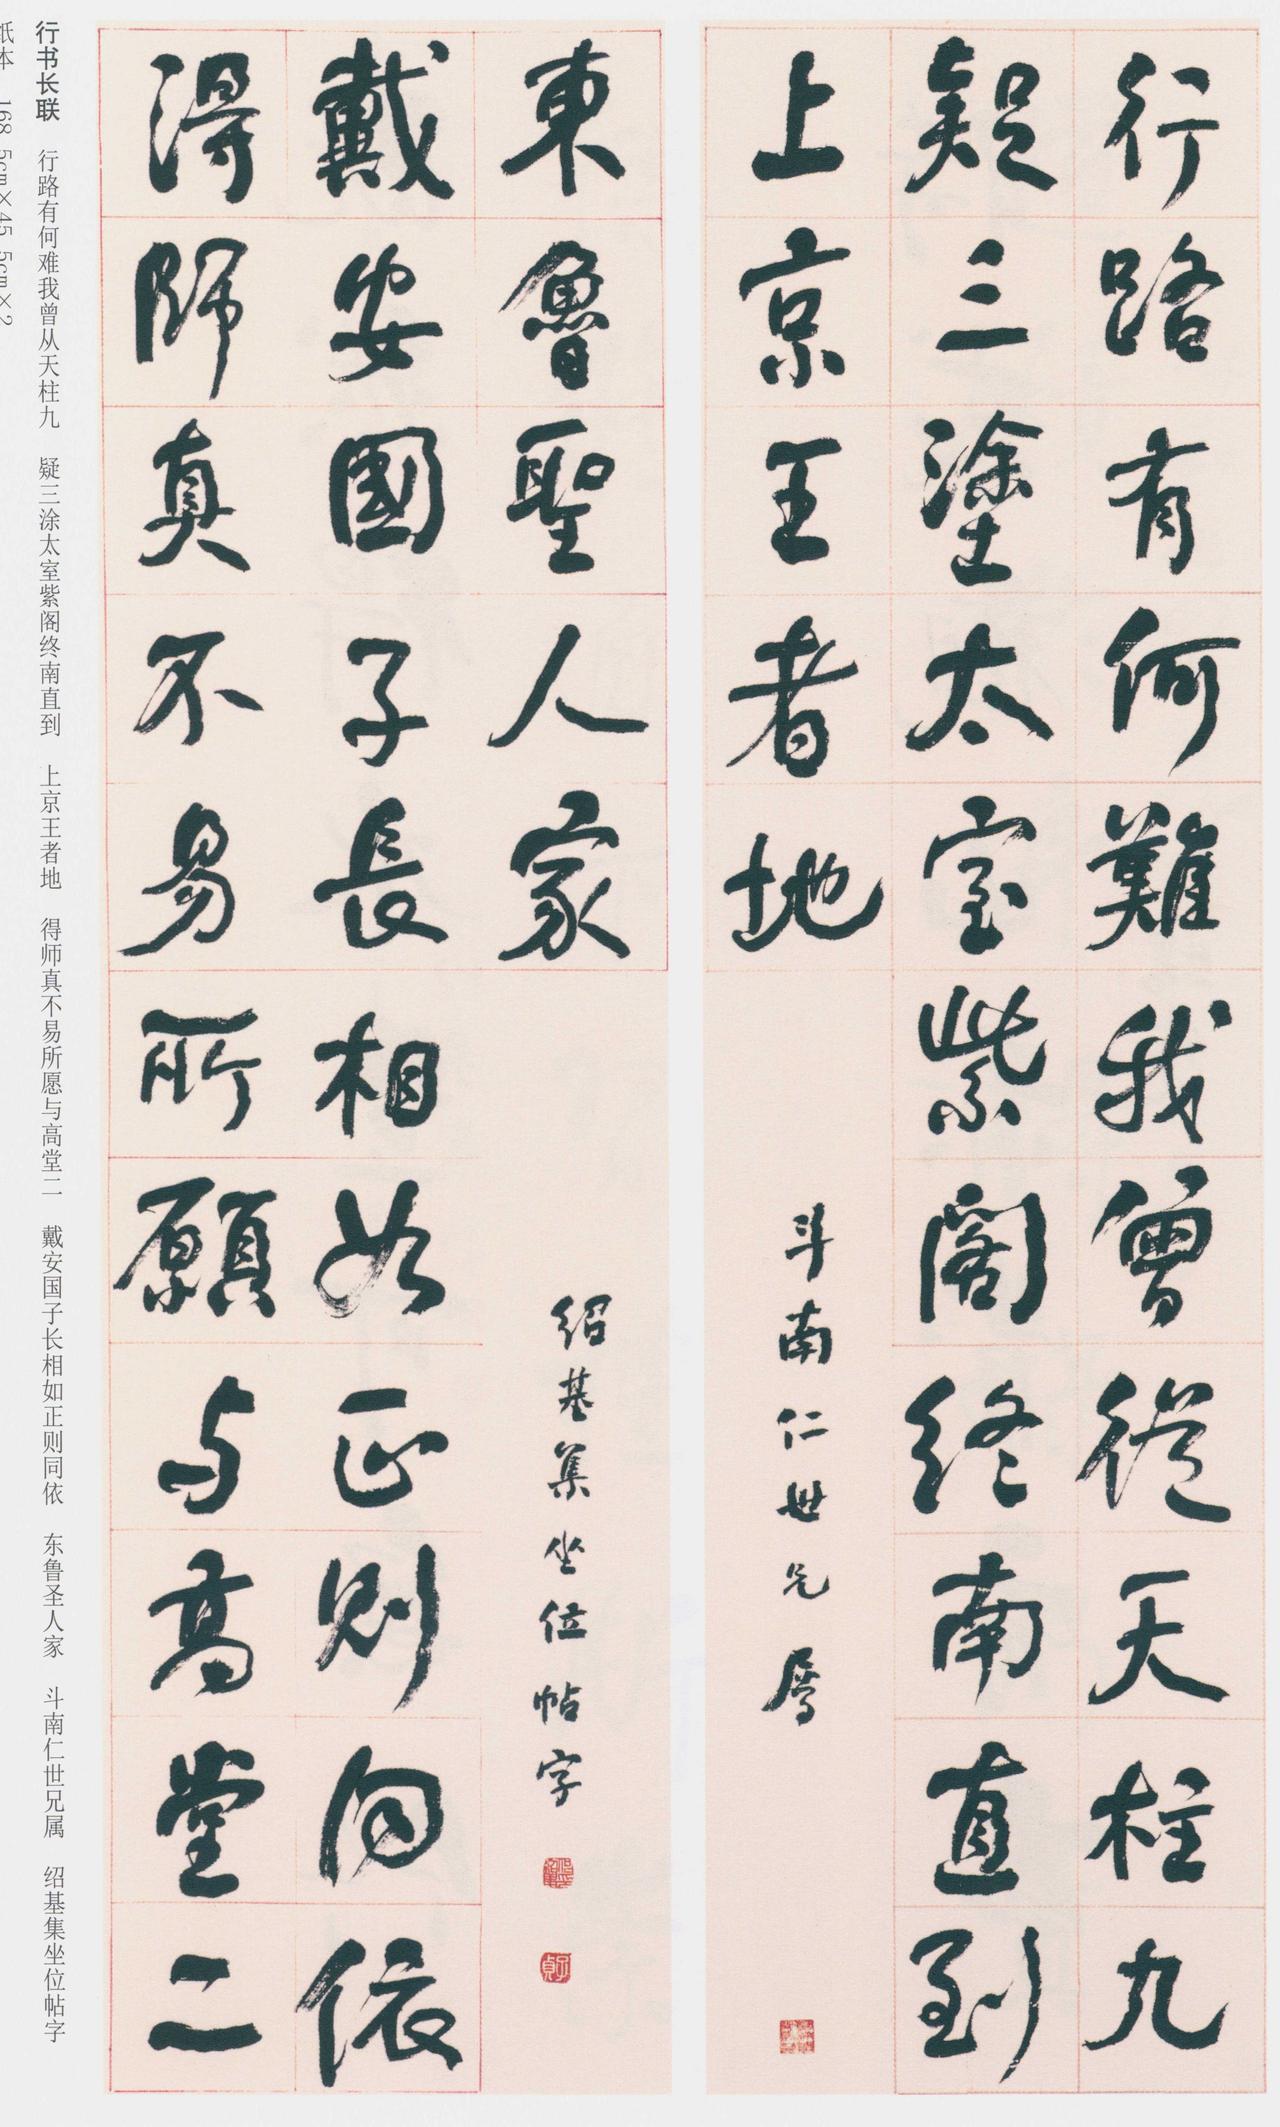 行路有何難我曾從天柱九
疑三塗太室紫閣終南直到
上京王者地
斗南仁世兄属
得師真不易所願与高堂二
戴安國子長相如正則同依
東魯聖人家
绍基集坐位帖字
行书长联 行路有何难我曾从天柱九 疑三涂太室紫阁终南直到 上京王者地 得师真不易所愿与高堂二 戴安国子长相如正则同依 东鲁圣人家 斗南仁世兄属 绍基集坐位帖字
纸本 168.5cm×45.5cm×2